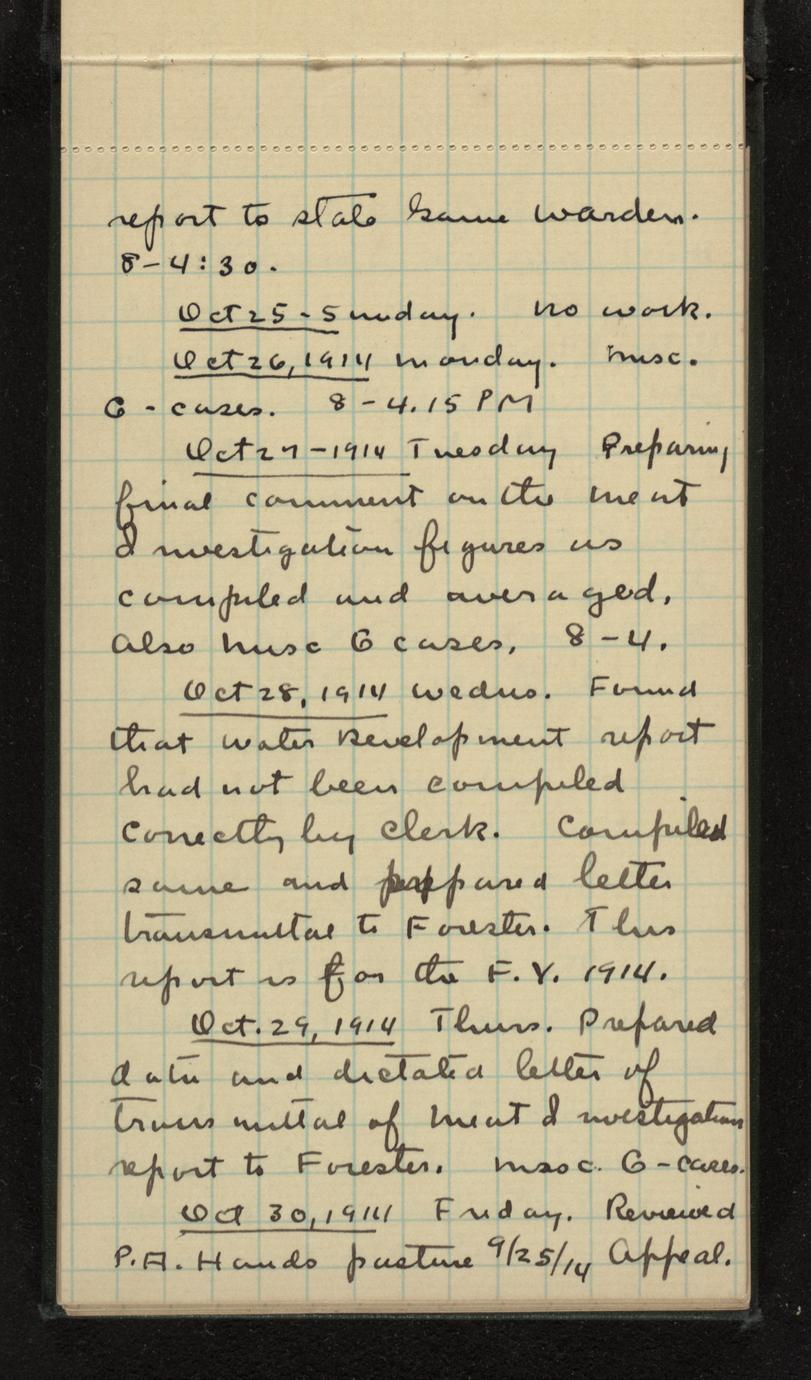 report to state Game warden.
8-4:30.
Oct 25-Sunday. No work.
Oct 26, 1914 Monday. Misc.
G-cases. 8-4.15 PM
Oct 27-1914 Tuesday Preparing
final comment on the meat
Investigation figures as
compiled and averaged,
Also Misc G cases, 8-4.
Oct 28, 1914 Wednes. Found
that water Development report
had not been compiled
correctly by clerk. Compiled
same and prepared letter
transmittal to Forester. This
report is for the F.Y. 1914.
Oct. 29, 1914 Thurs. Prepared
data and dictated letter of
transmittal of Meat Investigation
report to Forester. Misc. G-cases.
Oct 30, 1914 Friday. Reviewed
P.A. Hands pasture 9/25/14 Appeal.